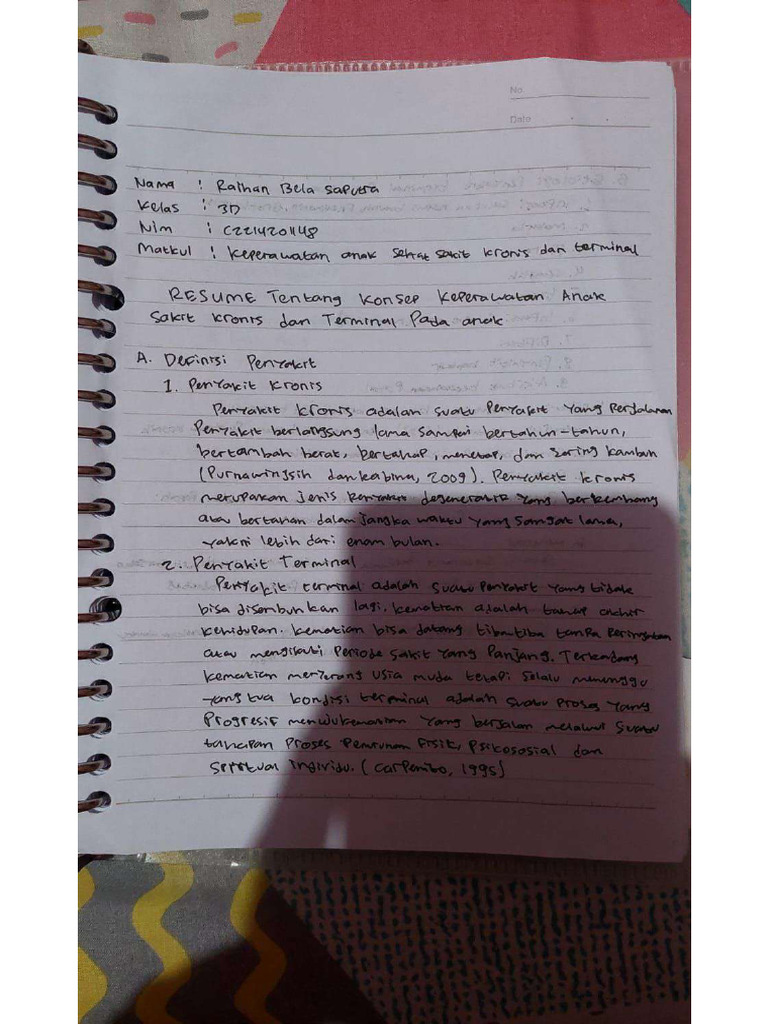 No.
Date
Nama : Raihan Bela Saputra
Kelas : 3D
Nim : C2214201148
Matkul : Keperawatan anak sehat sakit kronis dan terminal
RESUME Tentang Konsep Keperawatan Anak
Sakit Kronis dan Terminal Pada anak
A. Definisi Penyakit
1. Penyakit Kronis
Penyakit kronis adalah suatu Penyakit yang Perjalanan
Penyakit berlangsung lama sampai bertahun-tahun,
bertambah berat, bertahap, menetap, dan sering kambuh
(Purnawingsih dankabina, 2009). Penyakit kronis
merupakan jenis Penyakit degeneratif yang berkembang
atau bertahan dalam jangka waktu yang sangat lama,
yakni lebih dari enam bulan.
2. Penyakit Terminal
Penyakit terminal adalah suatu Penyakit yang tidak
bisa disembuhkan lagi. kematian adalah tahap akhir
kehidupan. kematian bisa datang tiba-tiba tanpa Peringatan
atau mengikuti Periode sakit yang Panjang. Terkadang
kematian menyerang usia muda tetapi selalu menunggu
yang tua kondisi terminal adalah suatu Proses yang
Progresif menuju kematian yang berjalan melalui suatu
tahapan Proses Penurunan fisik, Psikososial dan
spiritual individu. (Carpenito, 1995)